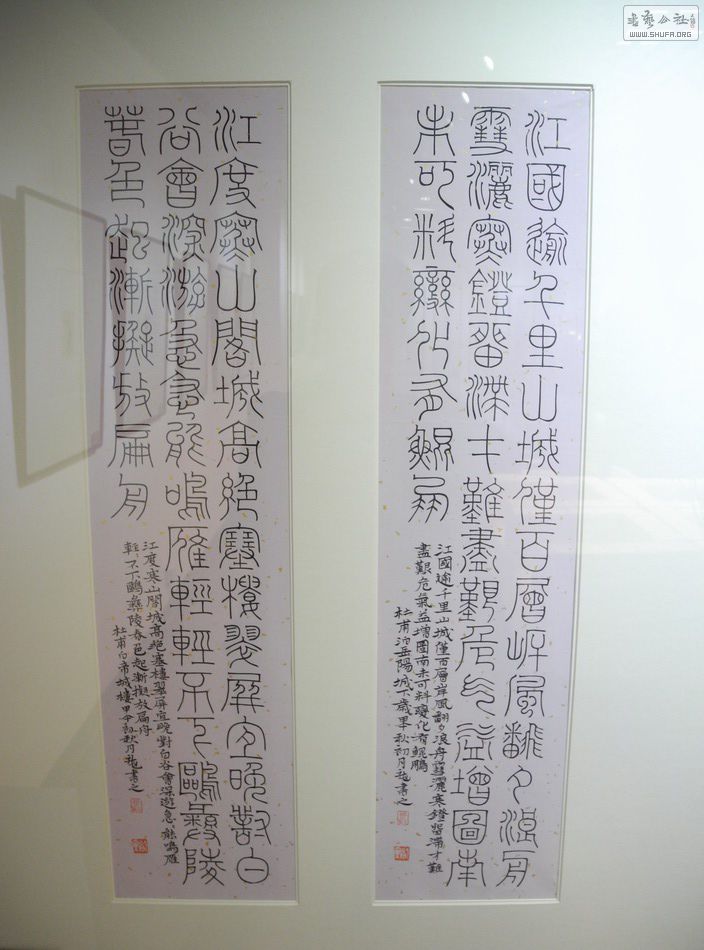 書藝公社
WWW.SHUFA.ORG
江國逾千里山城僅百層岸風翻夕浪舟
雪灑寒鐙留滯才難盡艱危氣益增圖南
未可料變化有鯤鵬
江國逾千里山城僅百層岸風翻夕浪舟雪灑寒鐙留滯才難
盡艱危氣益增圖南未可料變化有鯤鵬
杜甫泊岳陽城下歲甲午秋初月書之
江度寒山閣城高絕塞樓翠屏宜晚對白
谷會深游急急能鳴雁輕輕不下鷗彝陵
春色起漸擬放扁舟
江度寒山閣城高絕塞樓翠屏宜晚對白谷會深遊急〻能鳴雁
輕〻不下鷗彝陵春色起漸擬放扁舟
杜甫白帝城樓甲午初秋月書之